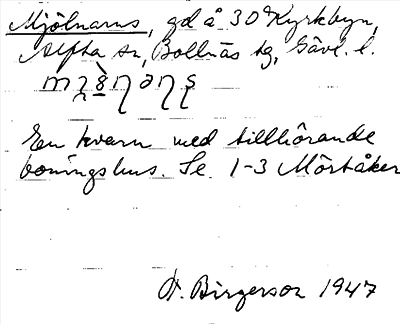 Mjölnarns, gd å 3 0 Kyrkbyn,
Alfta sn, Bollnäs tg, Gävl. l.
En kvarn med tillhörande
boningshus. Se 1-3 Mörtåker
A. Birgerson 1947